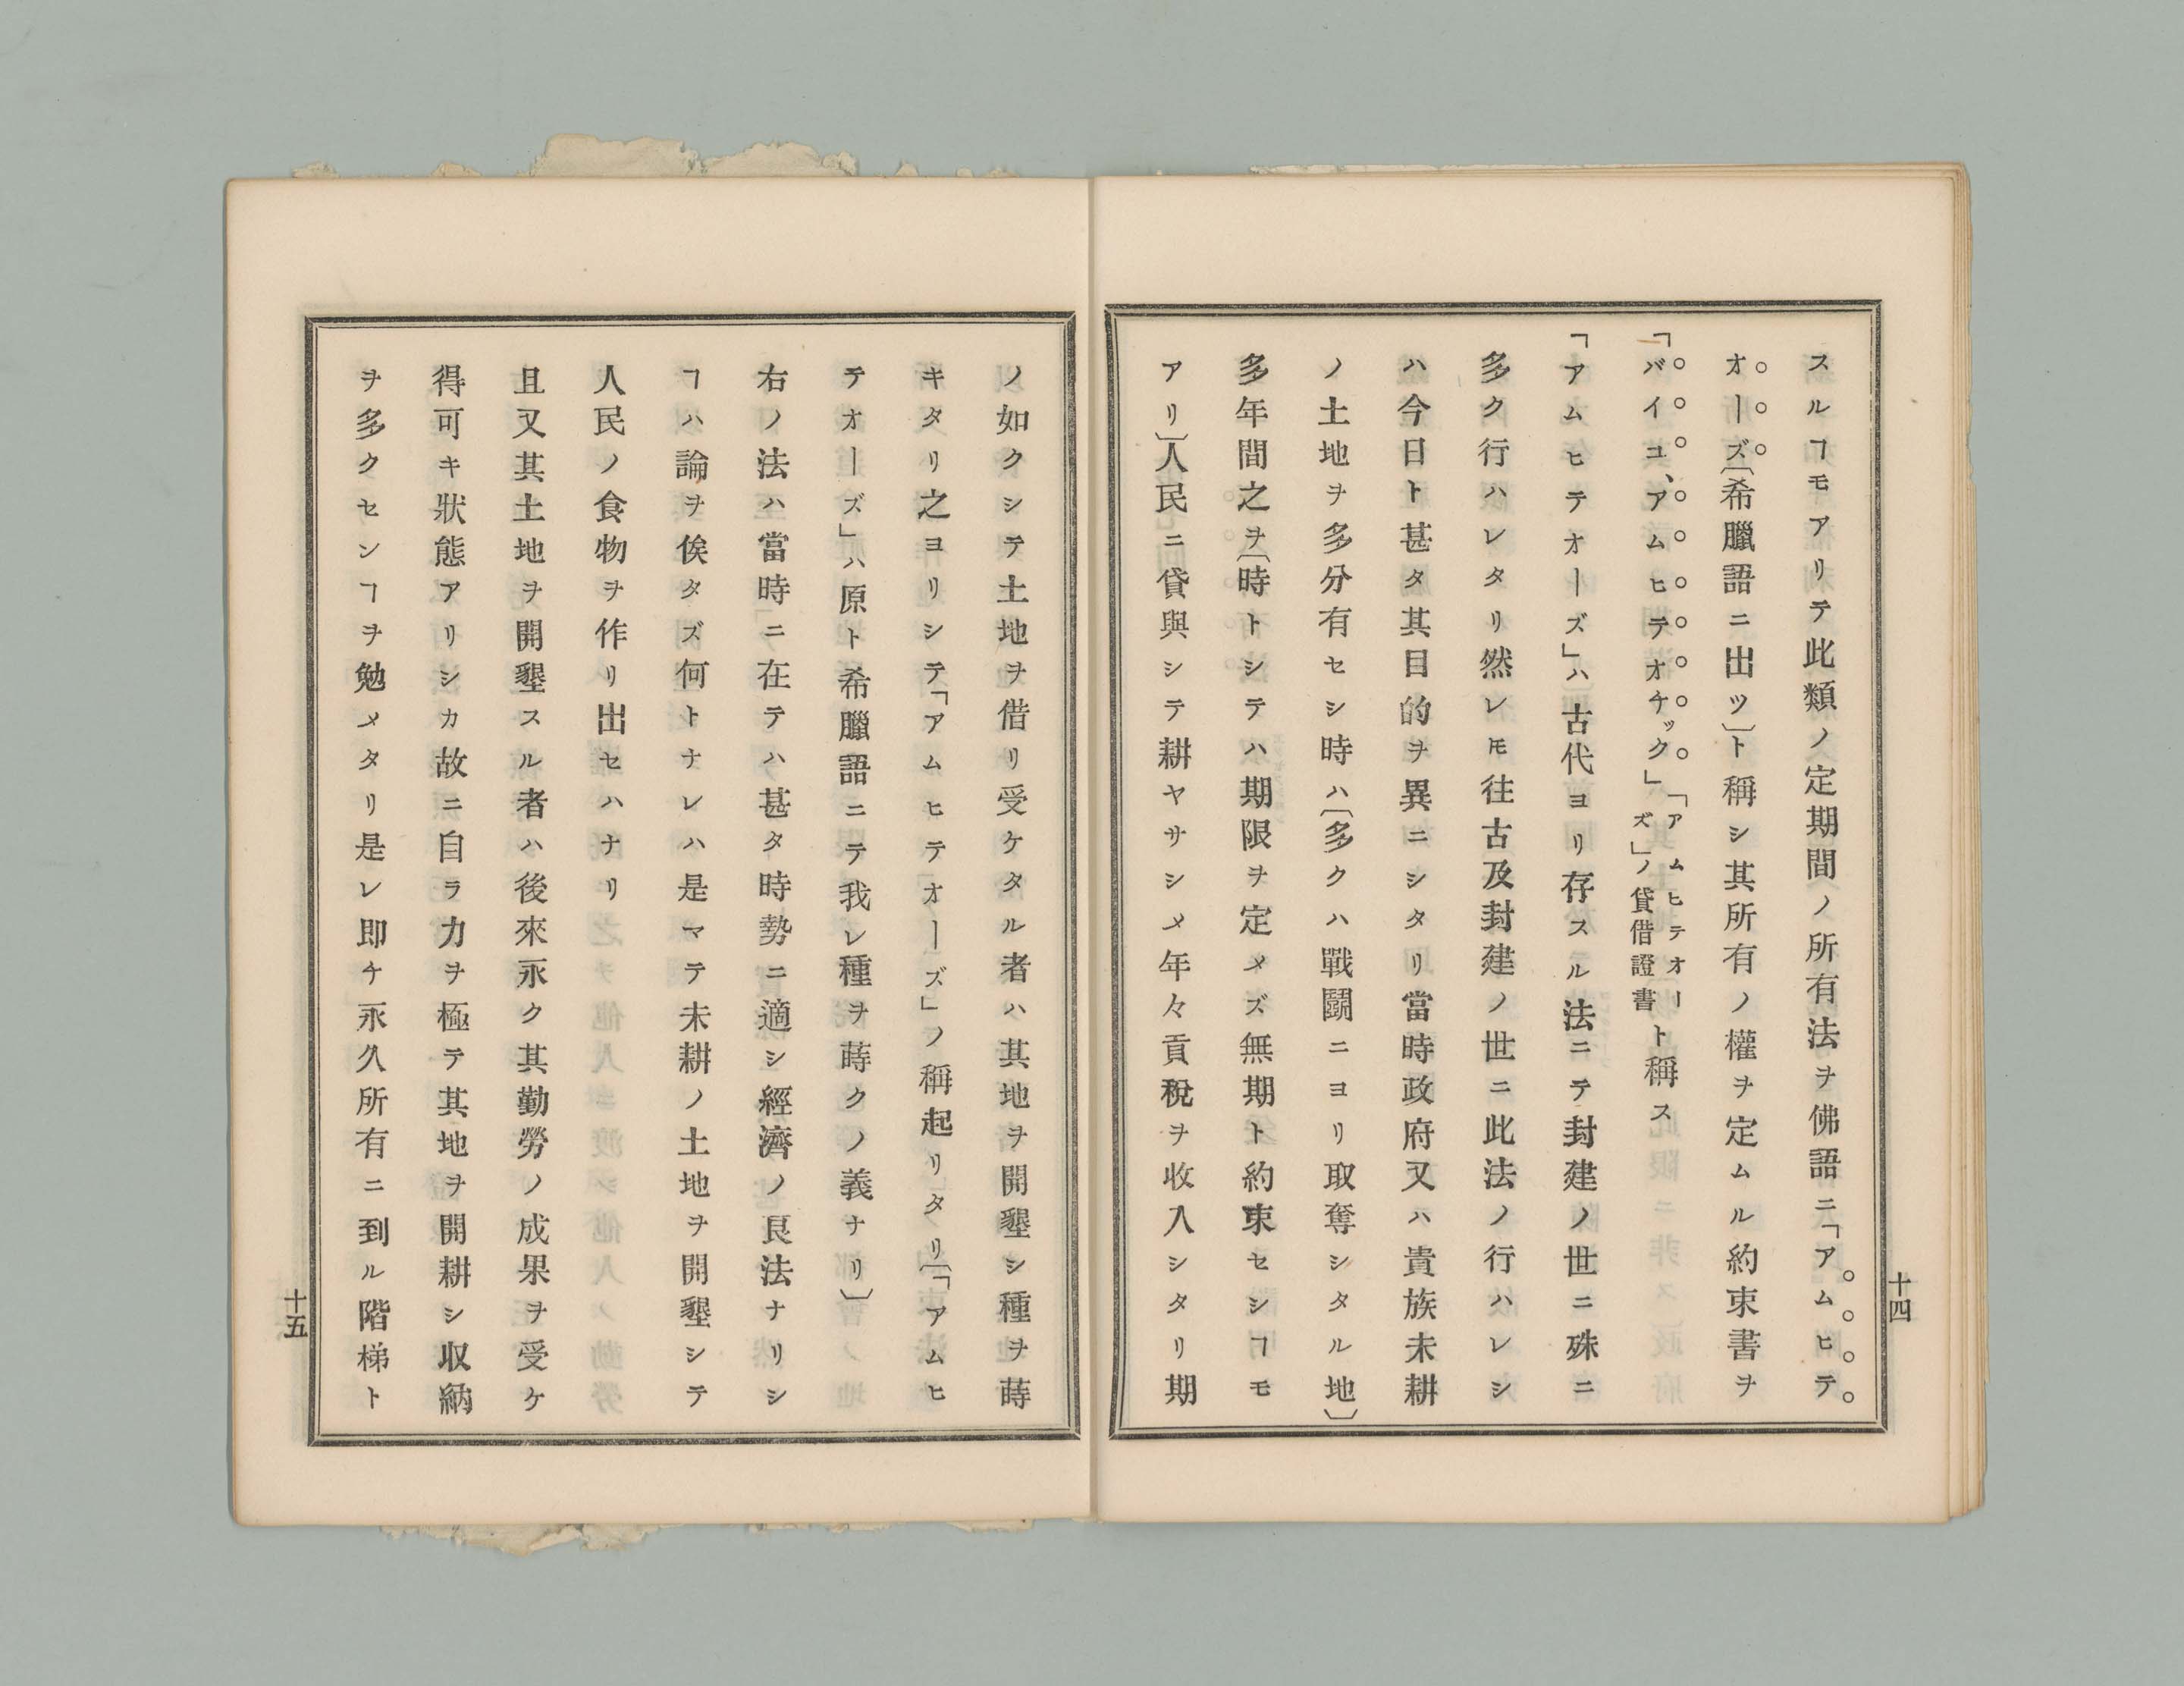 十四
スルヿモアリテ此類ノ定期間ノ所有法ヲ佛語ニ「アムヒテ
オーズ〔希臘語ニ出ツ〕ト稱シ其所有ノ權ヲ定ムル約束書ヲ
「バイユ、アムヒテオチック」「アムヒテオーズ」ノ貸借證書ト稱ス
「アムヒテオーズ」ハ古代ヨリ存スル法ニテ封建ノ世ニ殊ニ
多ク行ハレタリ然レ𪜈往古及封建ノ世ニ此法ノ行ハレシ
ハ今日ト甚タ其目的ヲ異ニシタリ當時政府又ハ貴族未耕
ノ土地ヲ多分有セシ時ハ〔多クハ戰鬪ニヨリ取奪シタル地〕
多年間之ヲ〔時トシテハ期限ヲ定メズ無期ト約束セシヿモ
アリ〕人民ニ貸與シテ耕ヤサシメ年々貢稅ヲ收入シタリ期
ノ如クシテ土地ヲ借リ受ケタル者ハ其地ヲ開墾シ種ヲ蒔
キタリ之ヨリシテ「アムヒテオーズ」ノ稱起リタリ〔「アムヒ
テオーズ」ハ原ト希臘語ニテ我レ種ヲ蒔クノ義ナリ〕
右ノ法ハ當時ニ在テハ甚タ時勢ニ適シ經濟ノ良法ナリシ
ヿハ論ヲ俟タズ何トナレハ是マテ未耕ノ土地ヲ開墾シテ
人民ノ食物ヲ作リ出セハナリ
且又其土地ヲ開墾スル者ハ後來永ク其勤勞ノ成果ヲ受ケ
得可キ狀態アリシカ故ニ自ラ力ヲ極テ其地ヲ開耕シ収納
ヲ多クセンヿヲ勉メタリ是レ即チ永久所有ニ到ル階梯ト
十五